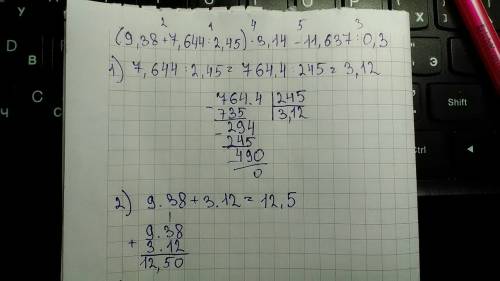 2 1 4 5 3
(9,38+7,644:2,45)·3,14-11,637:0,3
1) 7,644:2,45=764,4:245=3,12
-764.4 |245
735 |3,12
-294
245
-490
0
2) 9.38+3.12=12,5
1
9.38
+
3.12
12,50
Э
Shift